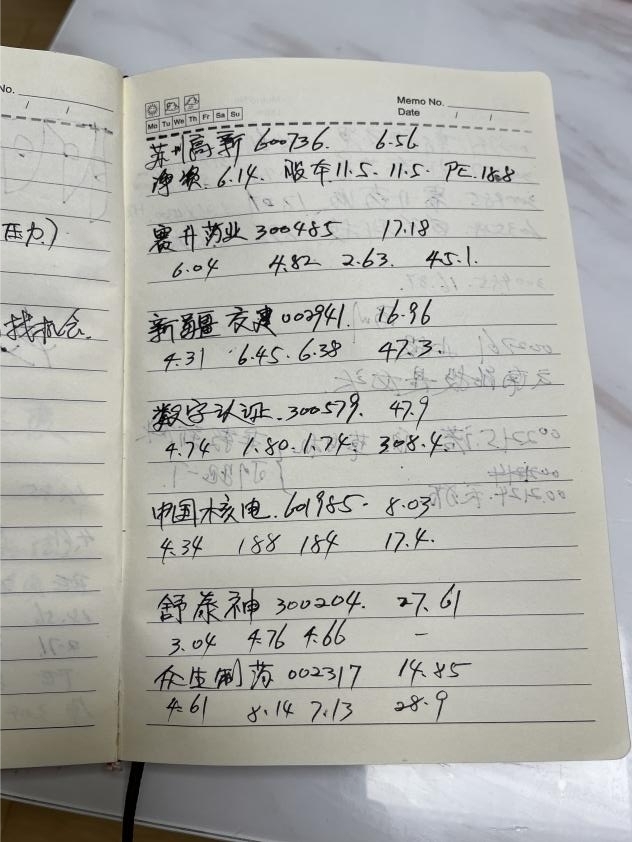 No.
/ /
压力)
找机会.
Memo No.
Date / /
Mo Tu We Th Fr Sa Su
苏州高新 600736. 6.56
净资. 6.14. 股本11.5. 11.5. PE.18.8
赛升药业 300485 17.18
6.04 4.82 2.63. 45.1.
新疆交建002941. 16.96
4.31 6.45. 6.38 47.3.
数字认证.300579. 47.9
4.74 1.80. 1.74. 308.4.
中国核电.601985. 8.03
4.34 188 184 17.4.
舒泰神 300204. 27.61
3.04 4.76 4.66 –
众生制药 002317 14.85
4.61 8.14 7.13 28.9